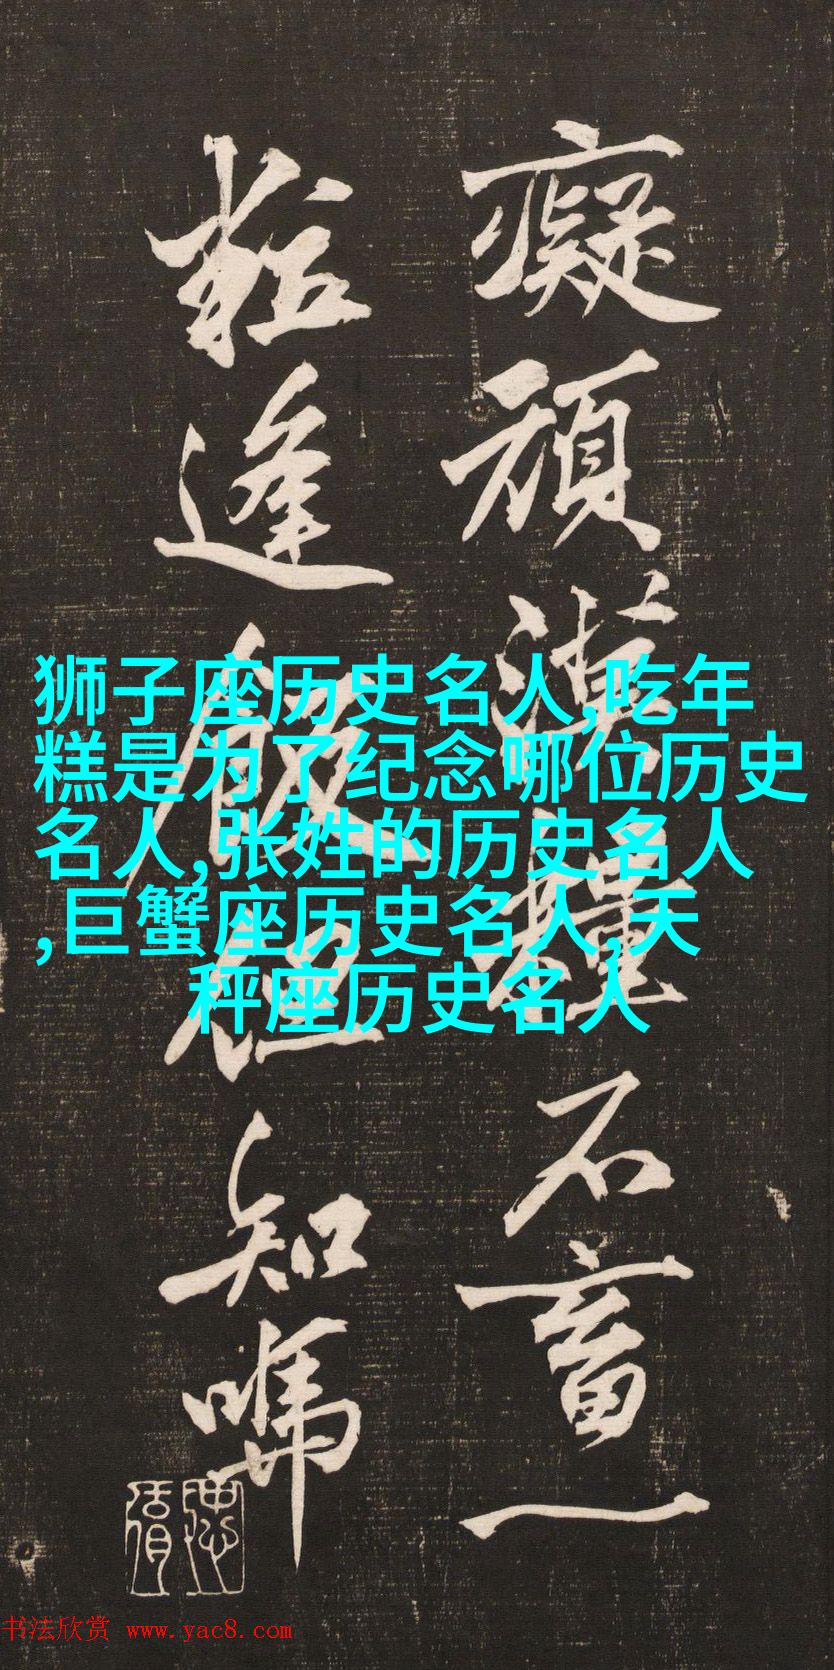 癡頑漢糧不畜一
粒逢飯但知噇
狮子座历史名人,吃年
糕是为了纪念哪位历史
名人,张姓的历史名人
,巨蟹座历史名人,天
秤座历史名人
书法欣赏 www.yac8.com